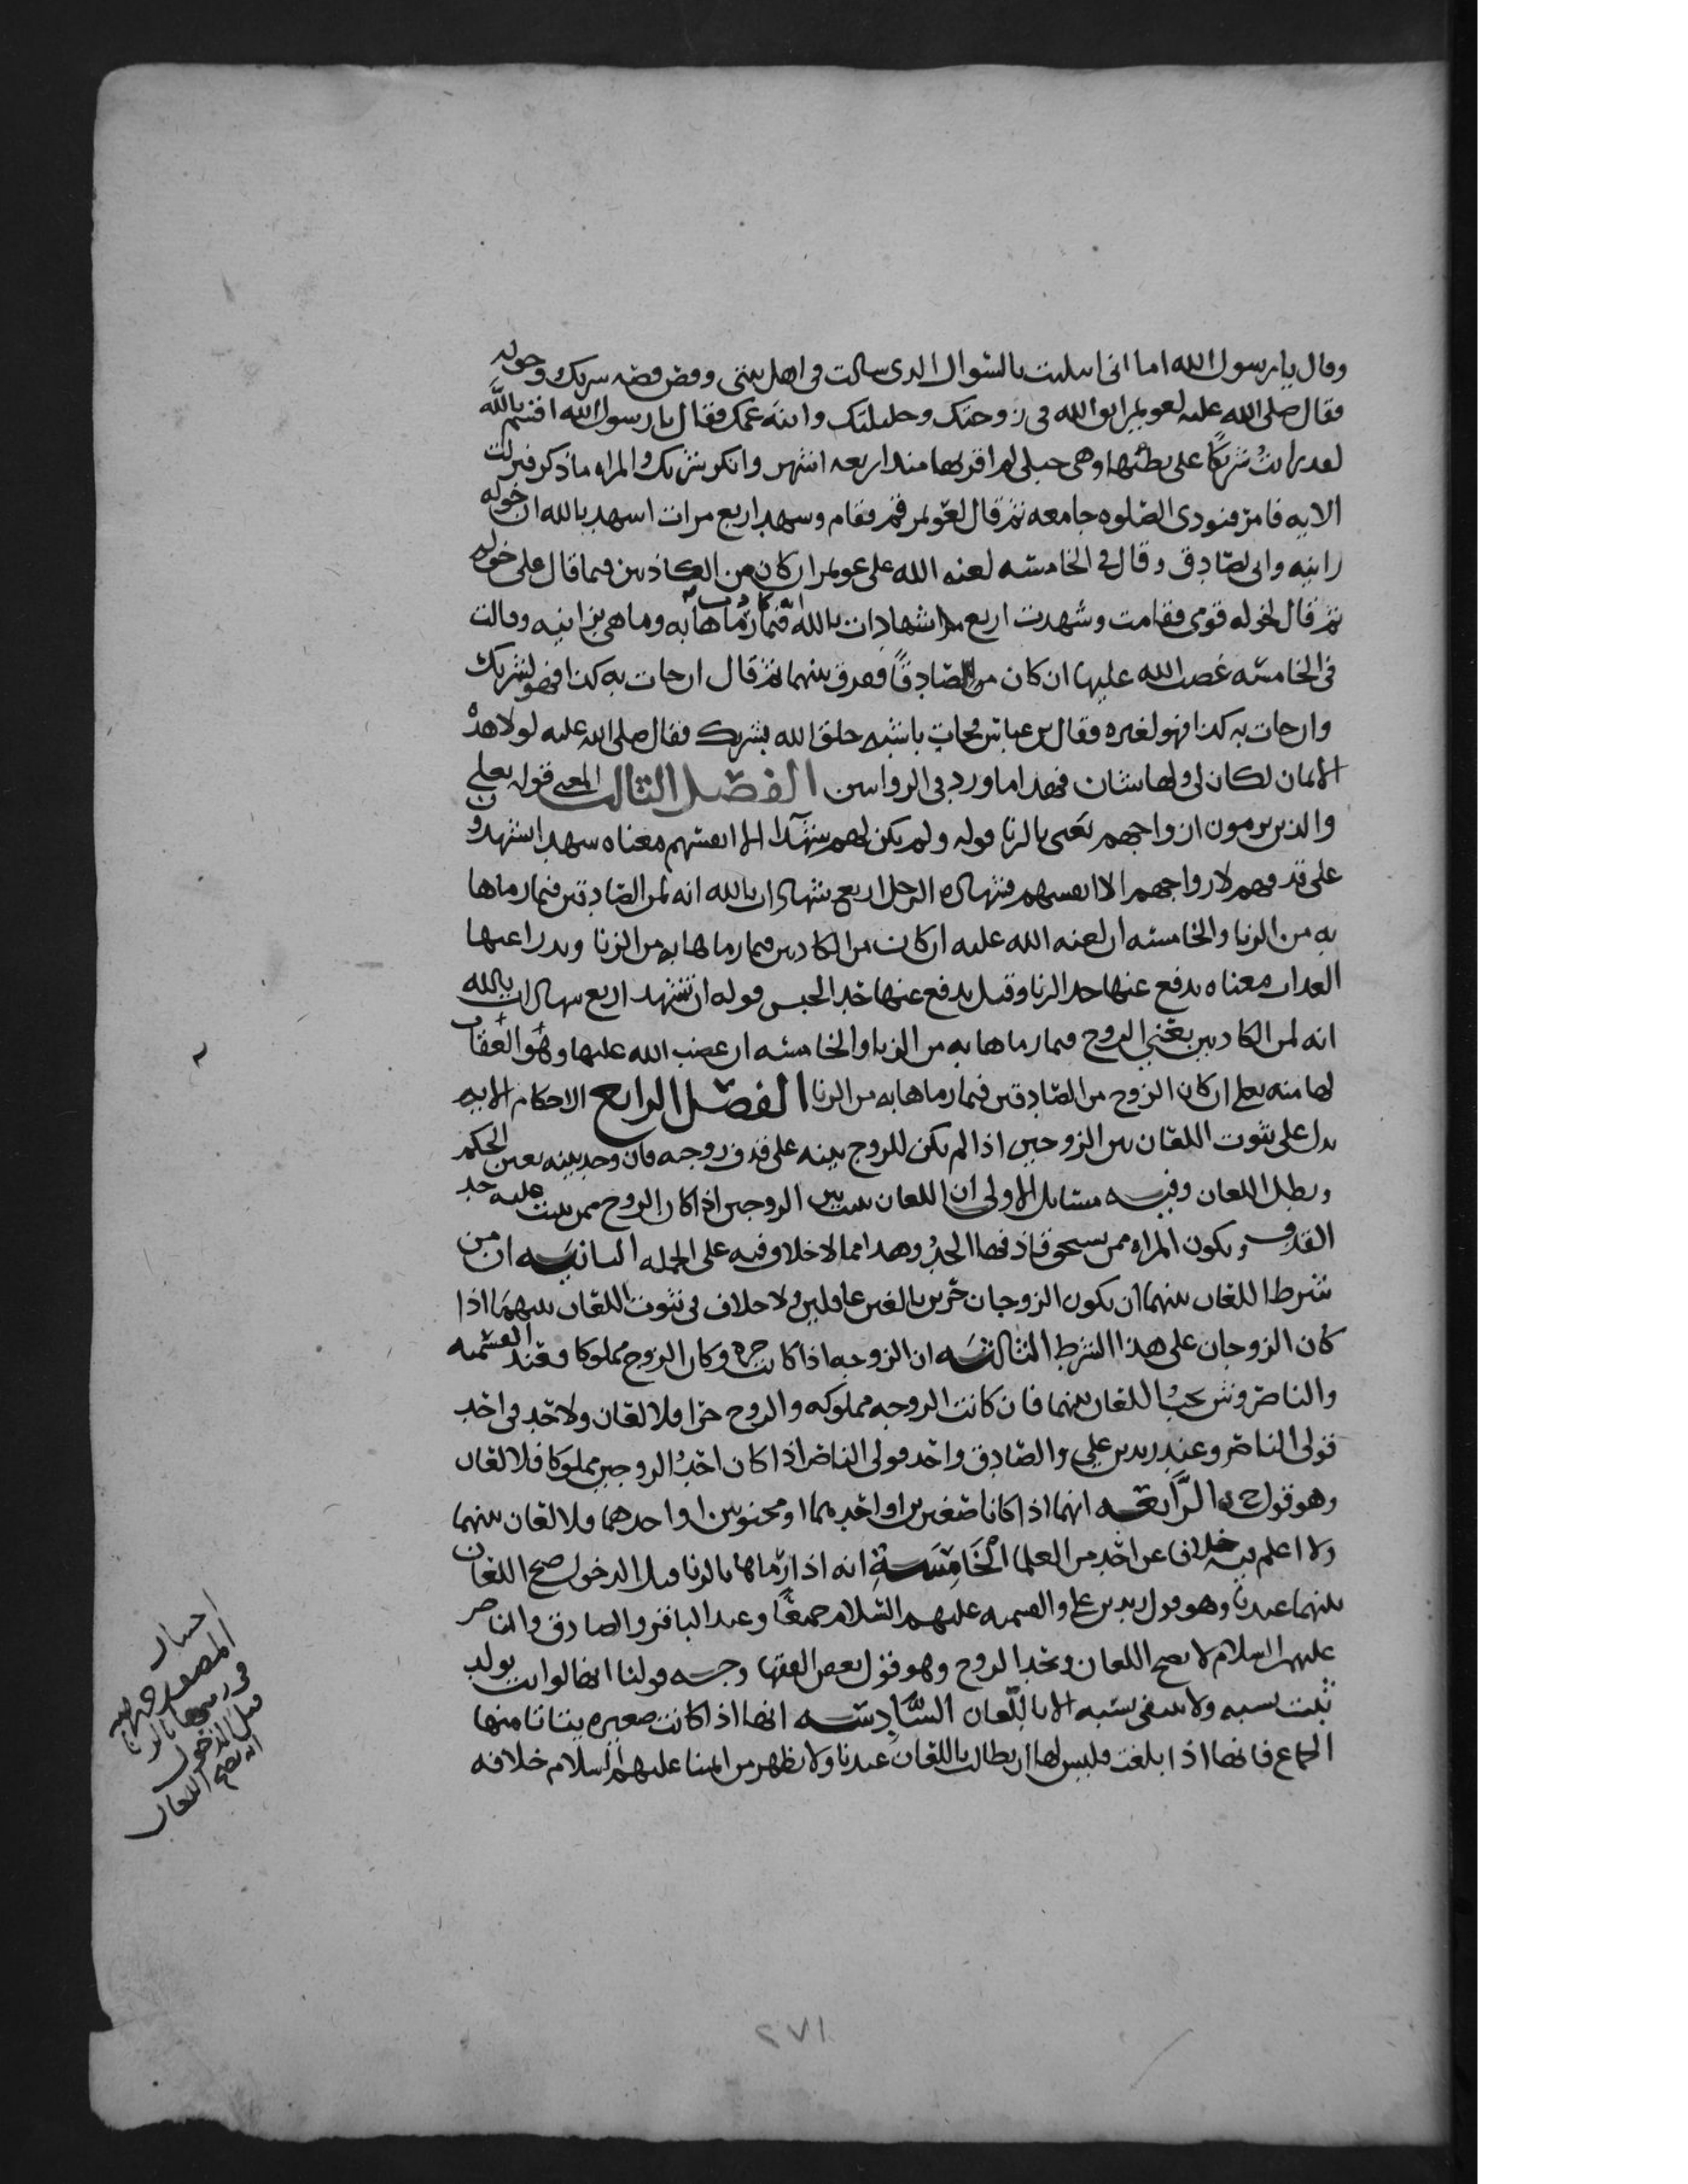 وقال يا رسول الله اما انى ابتليت بالسوال الذى سالت فى اهل بيتى وقص قصه شريك وخوله
فقال صلى الله عليه لعويمر اتق الله فى زوجتك وحليلتك وابنة عمك فقال يا رسول الله اقسم بالله
لقد رايتُ شريكًا على بطنها وهى حبلى لم اقربها منذ اربعه اشهر وانكر شريك والمراه ما ذكر فنزلت
الايه فامر فنودى الصلوه جامعه ثم قال لعويمر قم فقام وشهد اربع مرات اشهد بالله ان خوله
زانيه وانى لصادق وقال فى الخامسه لعنه الله على عويمر ان كان من الكاذبين فيما قال على خوله
ثم قال لخوله قومى فقامت وشهدت اربع شهادات بالله انه كاذب فيما رماها به وما هى بزانيه وقالت
فى الخامسه غضب الله عليها ان كان من الصادقًا ففرق بينهما ثم قال ان جات به كذا فهو لشريك
وان جات به كذا فهو لغيره فقال بن عباس فجات باشبه خلق الله بشريك فقال صلى الله عليه لولا هذه
الايمان لكان لى ولها شان فهذا ما ورد فى الروايتين الفصل الثالث المعنى قوله تعلى
والذين يرمون ازواجهم يعنى بالزنا قوله ولم يكن لهم شهدآ الا انفسهم معناه شهدا يشهدون
على قذفهم لازواجهم الا انفسهم فشهاده الرجل اربع شهادات بالله انه لمن الصادقين فيما رماها
به من الزنا والخامسه ان لعنه الله عليه ان كان من الكاذبين فيما رماها به من الزنا ويدرا عنها
العذاب معناه يدفع عنها حد الزنا وقيل يدفع عنها حد الحبس قوله ان تشهد اربع شهادات بالله
انه لمن الكاذبين يعنى الزوج فيما رماها به من الزنا والخامسه ان غضب الله عليها وهُو العُقاب
لها منه تعلى ان كان الزوج من الصادقين فيما رماها به من الزنا الفصل الرابع الاحكام الايه
تدل على ثبوت اللعان بين الزوجين اذا لم يكن للزوج بينه على قذف زوجه فان وجد بينه تعين الحكم
وبطل اللعان وفيه مسايل الاولى ان اللعان يثبت بين الزوجين اذا كان الزوج ممن يثبت عليه حد
القذف وتكون المراه ممن يستحق قاذفها الحدُ وهذا مما لا خلاف فيه على الجمله الثانيه ان من
شرط اللعان بينهما ان يكون الزوجان حرين بالغين عاقلين ولا خلاف فى ثبوت اللعان بينهما اذا
كان الزوجان على هذا الشرط الثالثه ان الزوجه اذا كانت حره وكان الزوج مملوكا فعند القسميه
والناصر وش يجبُ اللعان بينهما فان كانت الزوجه مملوكه والزوج حرا فلا لعان ولا حد فى احد
قولى الناصر وعند زيد بن على والصادق واحد قولى الناصر اذا كان احدُ الزوجين مملوكا فلا لعان
وهو قول ح الرَّابعه انهما اذا كانا صغيرين او احدهما او مجنونين او احدهما فلا لعان بينهما
ولا اعلم فيه خلافا عن احد من العلما الخامِسَة انه اذا رماها بالزنا قبل الدخول صح اللعان
بينهما عندنا وهو قول زيد بن على والقسميه عليهم السلام جميعًا وعند الباقر والصادق والناصر
عليهم السلام لا يصح اللعان ويحد الزوج وهو قول بعض الفقها وجه قولنا انها لو اتت بولد
ثبت نسبه ولا ينتفى نسبه الا باللعان السَّادِسَه انها اذا كانت صغيره يتاتا منها
الجماع فانها اذا بلغت فليس لها ان تطالب باللعان عندنا ولا يظهر من ايمتنا عليهم السلام خلافه
احسار
المصنف
فى رميها بالزنا
قبل الدخول
انه يصح اللعان
٢٧١